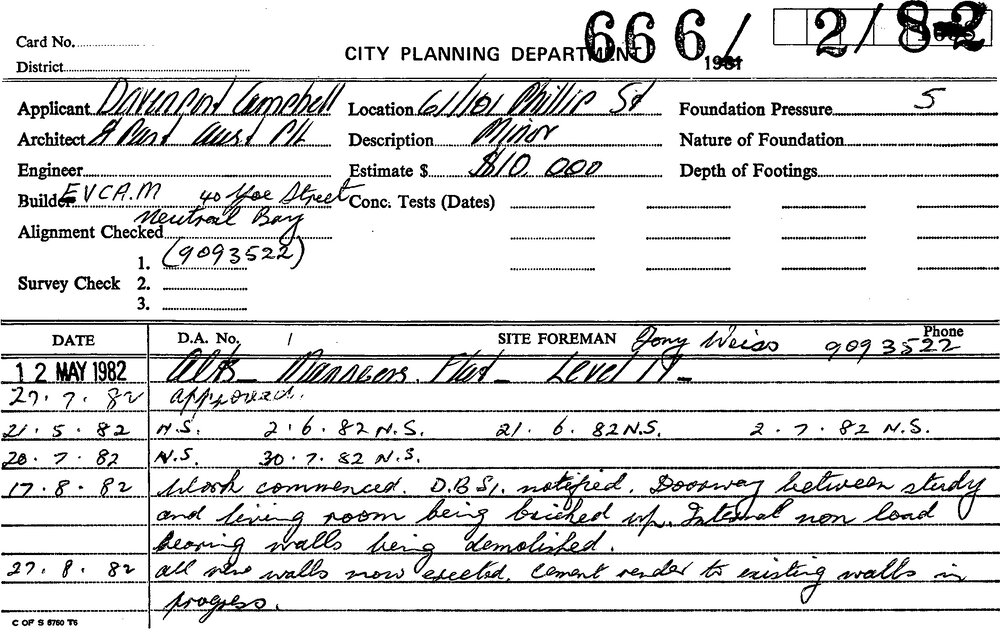 666/ 2/82
Card No.
District
CITY PLANNING DEPARTMENT 1981
Applicant Davenport Campbell Location 61/101 Phillip St Foundation Pressure 5
Architect Aust P/L Description Minor Nature of Foundation
Engineer Estimate $ $10 000 Depth of Footings
Builder EVCA.M 40 Yeo Street Conc. Tests (Dates)
Neutral Bay
Alignment Checked
1. (9093522)
Survey Check 2.
3.
DATE D.A. No. SITE FOREMAN Tony Weiss Phone 9093522
12 MAY 1982 Alts - Managers. Flat - Level 19 -
27.7.82 approved.
21.5.82 N.S. 2.6.82 N.S. 21.6.82 N.S. 2.7.82 N.S.
20.7.82 N.S. 30.7.82 N.S.
17.8.82 Work commenced. D.B.S1. notified. Doorway between study
and living room being bricked up. Internal non load
bearing walls being demolished.
27.8.82 all new walls now erected. Cement render to existing walls in
progress.
C OF S 6760 T6